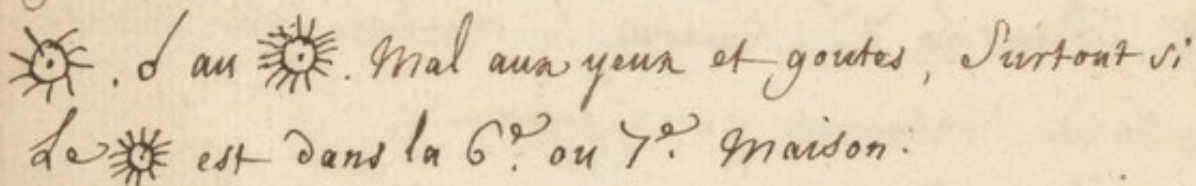 ☉. ☌ au ☉. Mal aux yeux et goutes, Surtout si
Le ☉ est dans la 6.e ou 7.e Maison.